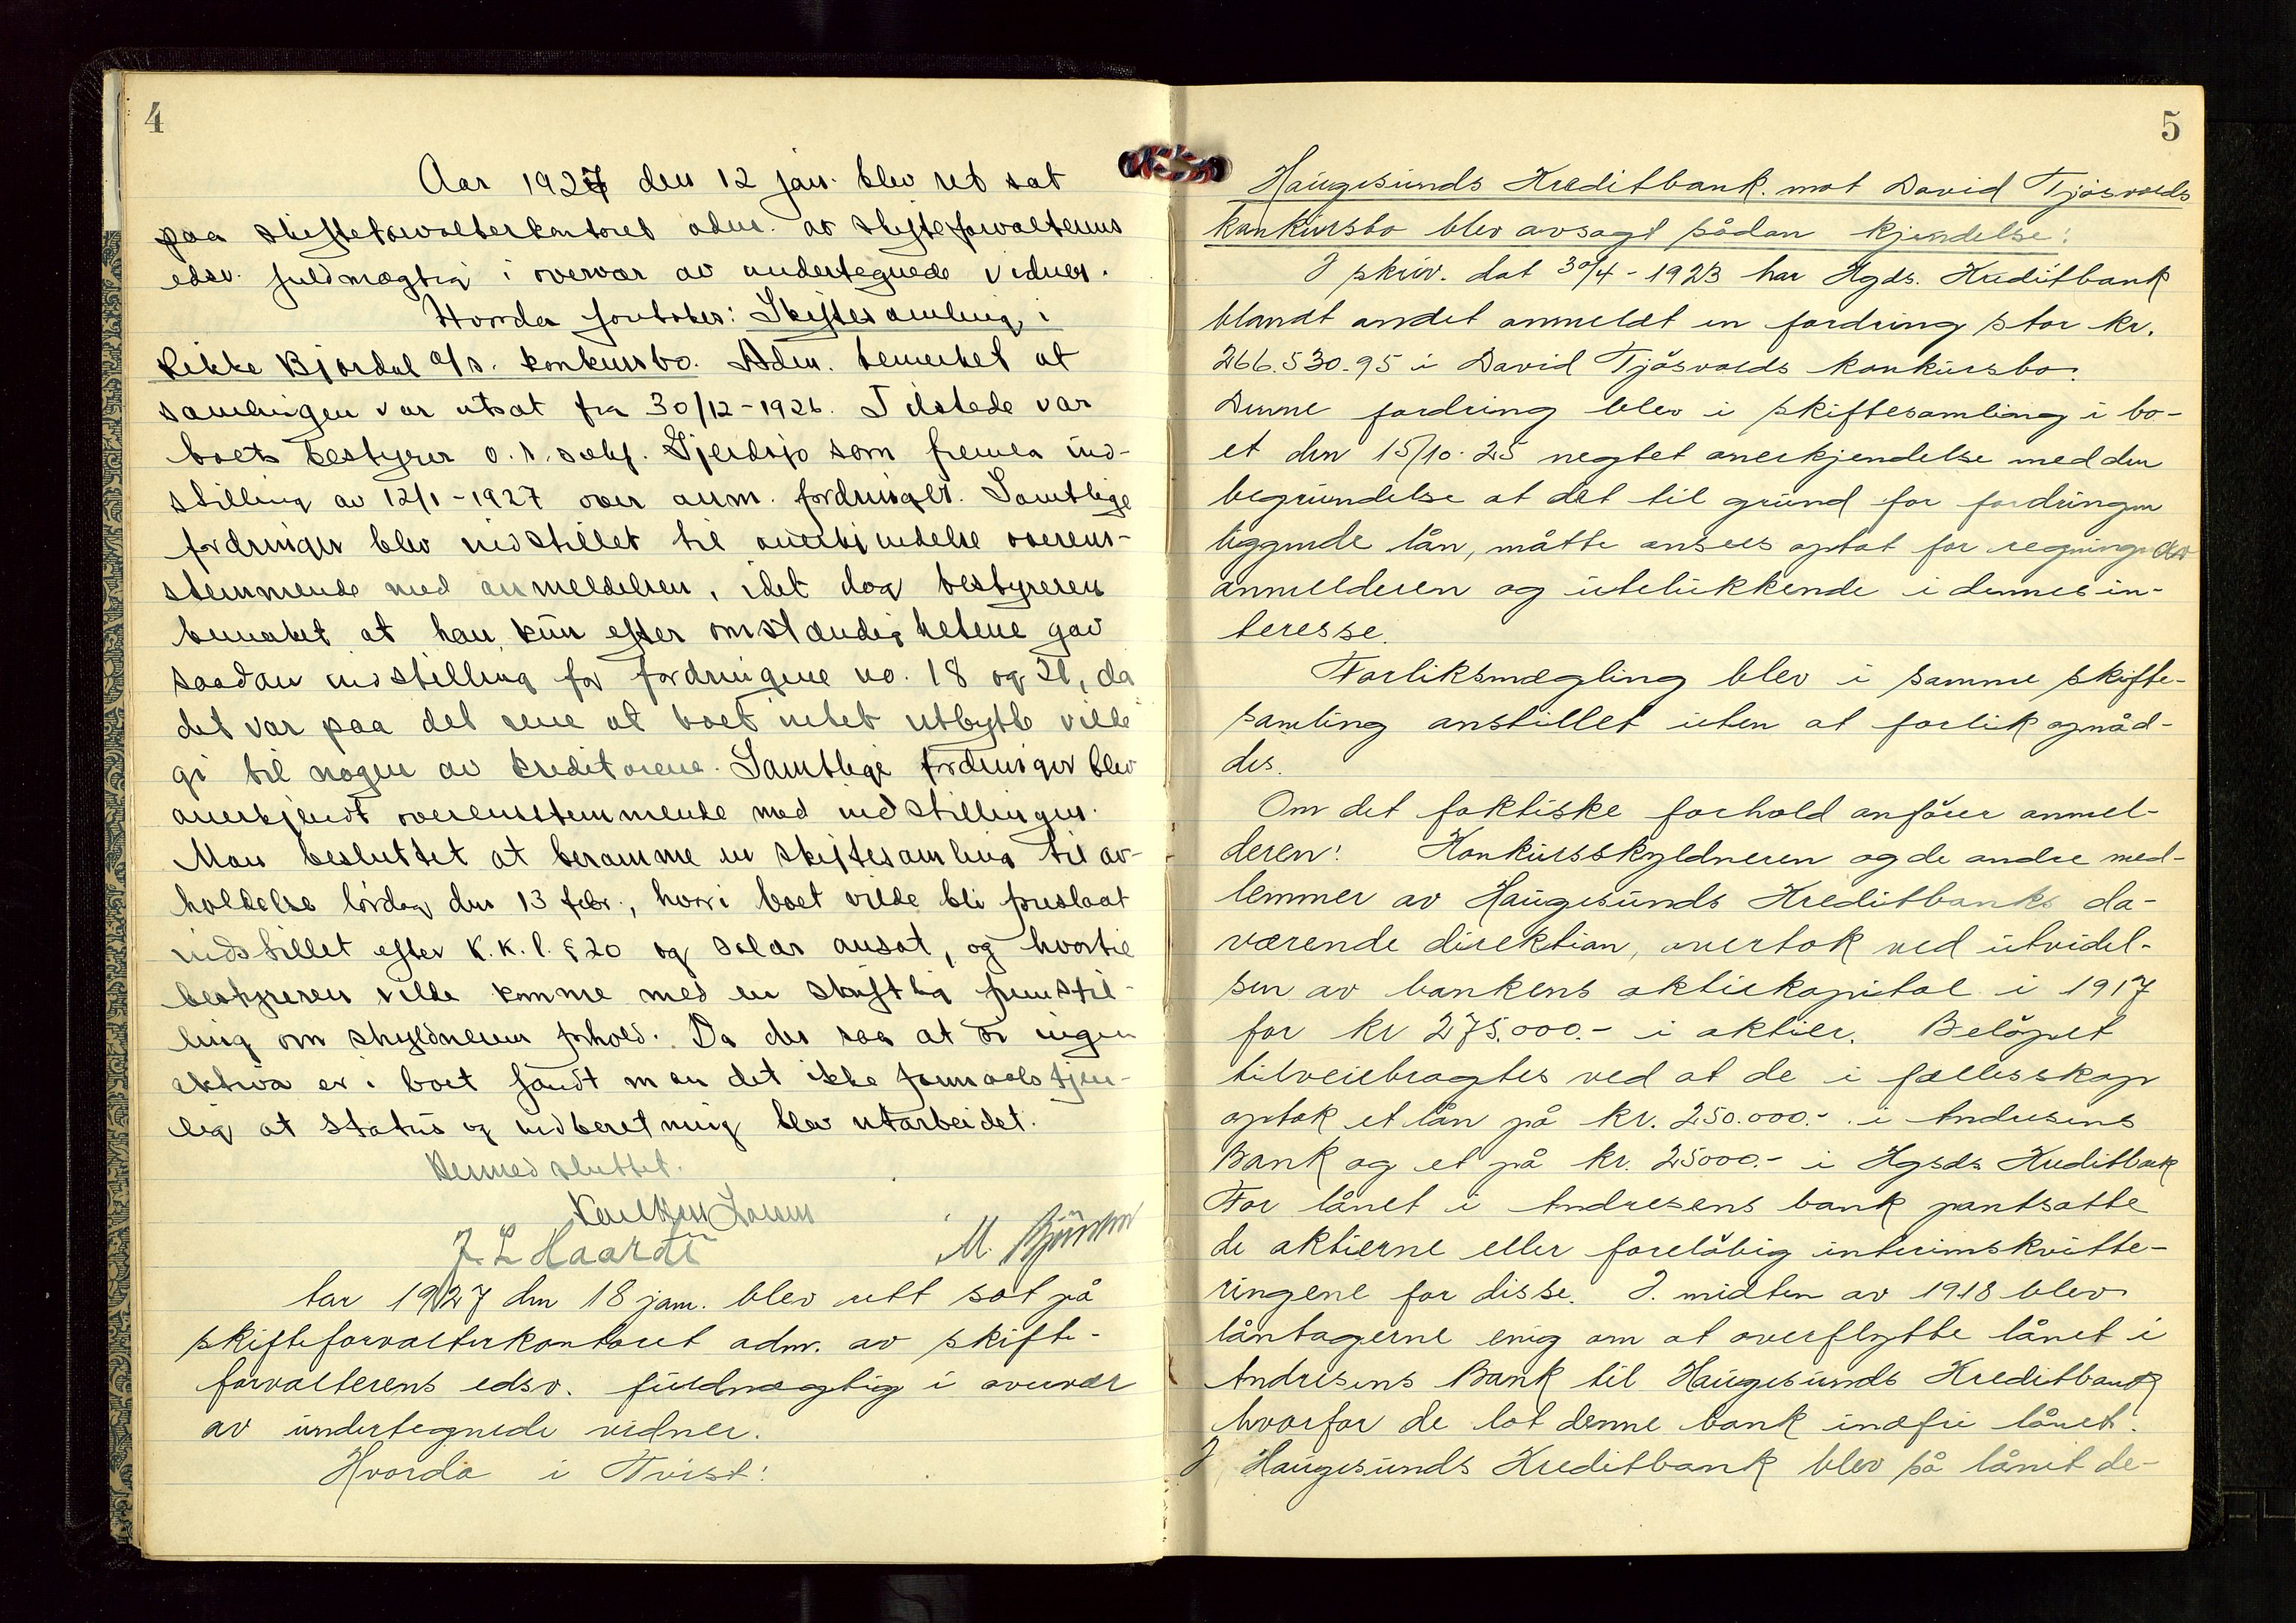 4
Aar 1927 den 12 jan. blev ret sat
paa skifteforvalterkontoret adm. av skifteforvalterens
edsv. fuldmægtig i overvær av undertegnede vidner.
Hvorda foretokes: Skiftesamling i
Rikke Bjordal a/s. konkursbo. Adm. bemerket at
samlingen var utsat fra 30/12-1926. Tilstede var
boets bestyrer o.r.sakf. Gjerdsjo som fremla ind-
stilling av 12/1-1927 over anm. fordringer. Samtlige
fordringer blev indstillet til anerkjendelse overens-
stemmende med anmeldelsen, idet dog bestyreren
bemerket at han kun efter omstændighetene gav
saadan indstilling for fordringene no. 18 og 21, da
det var paa det rene at boet intet utbytte vilde
gi til nogen av kreditorene. Samtlige fordringer blev
anerkjendt overensstemmende med indstillingen.
Man besluttet at beramme en skiftesamling til av-
holdelse lørdag den 13 febr., hvori boet vilde bli preslaat
indstillet efter K.K.l. § 20 og salær ansat, og hvortil
bestyreren vilde komme med en skriftlig fremstil-
ling om skyldneren forhold. Da der saa at si ingen
aktiva er i boet fandt man det ikke formaalstjen-
lig at status og indberetning blev utarbeidet.
Dermed sluttet.
J. L. Haardt
M.
Aar 1927 den 18 jan. blev rett sat på
skifteforvalterkontoret adm. av skifte-
forvalterens edsv. fuldmægtig i overvær
av undertegnede vidner.
Hvorda i Tvist:
5
Haugesunds Kreditbank. mot David Tjøsvolds
konkursbo blev avsagt sådan kjendelse:
I skriv. dat 30/4-1923 har Hgds. Kreditbank
blandt andet anmeldt en fordring stor kr.
266.530.95 i David Tjøsvolds konkursbo.
Denne fordring blev i skiftesamling i bo-
et den 15/10.25 negtet anerkjendelse med den
begrundelse at det til grund for fordringen
liggende lån, måtte ansees optat for regning av
anmelderen og utelukkende i dennes in-
teresse.
Forliksmægling blev i samme skifte-
samling anstillet uten at forlik opnåd-
des.
Om det faktiske forhold anfører anmel-
deren: Konkursskyldneren og de andre med-
lemmer av Haugesunds Kreditbanks da-
værende direktion, overtok ved utvidel-
sen av bankens aktiekapital i 1917
for kr 275.000.- i aktier. Beløpet
tilveiebragtes ved at de i fællesskap
optok et lån på kr. 250.000.- i Andresens
Bank og et på kr. 25000.- i Hgsds Kreditbank
For lånet i Andresens bank pantsatte
de aktierne eller foreløbig interimskvitte-
ringene for disse. I midten av 1918 blev
låntagerne enig om at overflytte lånet i
Andresens Bank til Haugesunds Kreditbank
hvorfor de lot denne bank indfri lånet.
I Haugesunds Kreditbank blev så lånet de-